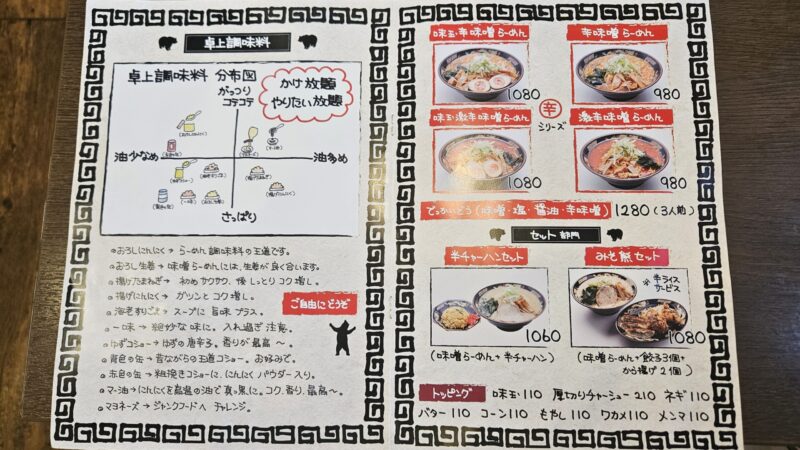 卓上調味料
卓上調味料 分布図
がっつり
コテコテ
かけ放題
やりたい放題
油少なめ
油多め
さっぱり
おろしにんにく→らーめん調味料の王道です。
おろし生姜→味噌らーめんには、生姜が良く合います。
揚げ玉ねぎ→初めサクサク、後しっとりコク増し。
揚げにんにく→ガツンとコク増し。
海老すりごま→スープに旨味プラス。
一味→絶妙な味に。入れ過ぎ注意。
ゆずコショー→ゆずの唐辛子。香りが最高〜
青色の缶→昔ながらの王道コショー。お好みで。
赤色の缶→粗挽きコショーに、にんにくパウダー入り。
マー油→にんにくを高温の油で真っ黒に。コク、香り、最高〜。
マヨネーズ→ジャンクフードへチャレンジ。
ご自由にどうぞ
味玉・辛味噌らーめん
1080
辛味噌らーめん
980
辛
シリーズ
味玉・激辛味噌らーめん
1080
激辛味噌らーめん
980
でっかいどう(味噌・塩・醤油・辛味噌) 1280(3人前)
セット部門
半チャーハンセット
1060
(味噌らーめん+半チャーハン)
みそ熊セット
※半ライス
サービス
1080
(味噌らーめん+餃子3個+
から揚げ2個)
トッピング
味玉110 厚切りチャーシュー210 ネギ110
バター110 コーン110 もやし110 ワカメ110 メンマ110